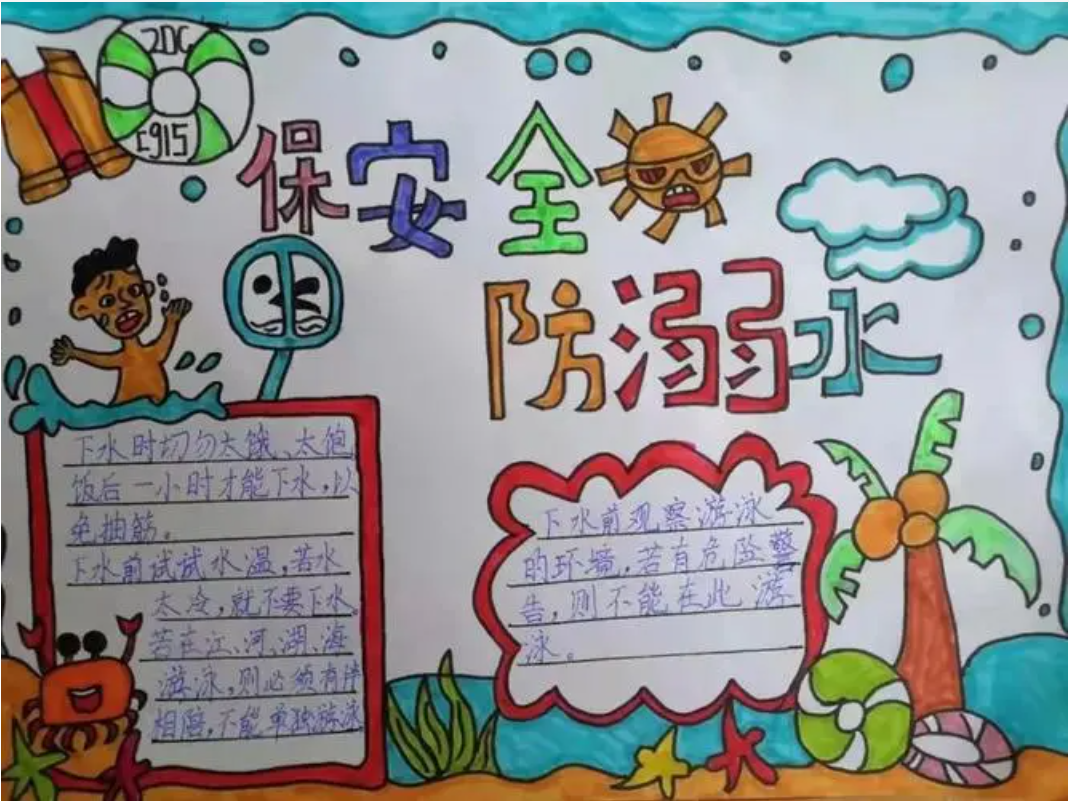 2DC
C915
保安全
防溺水
下水时切勿太饿、太饱
饭后一小时才能下水，以
免抽筋。
下水前试试水温，若水
太冷，就不要下水。
若在江、河、湖、海
游泳，则必须有伴
相陪，不能单独游泳
下水前观察游泳
的环境，若有危险警
告，则不能在此游
泳。